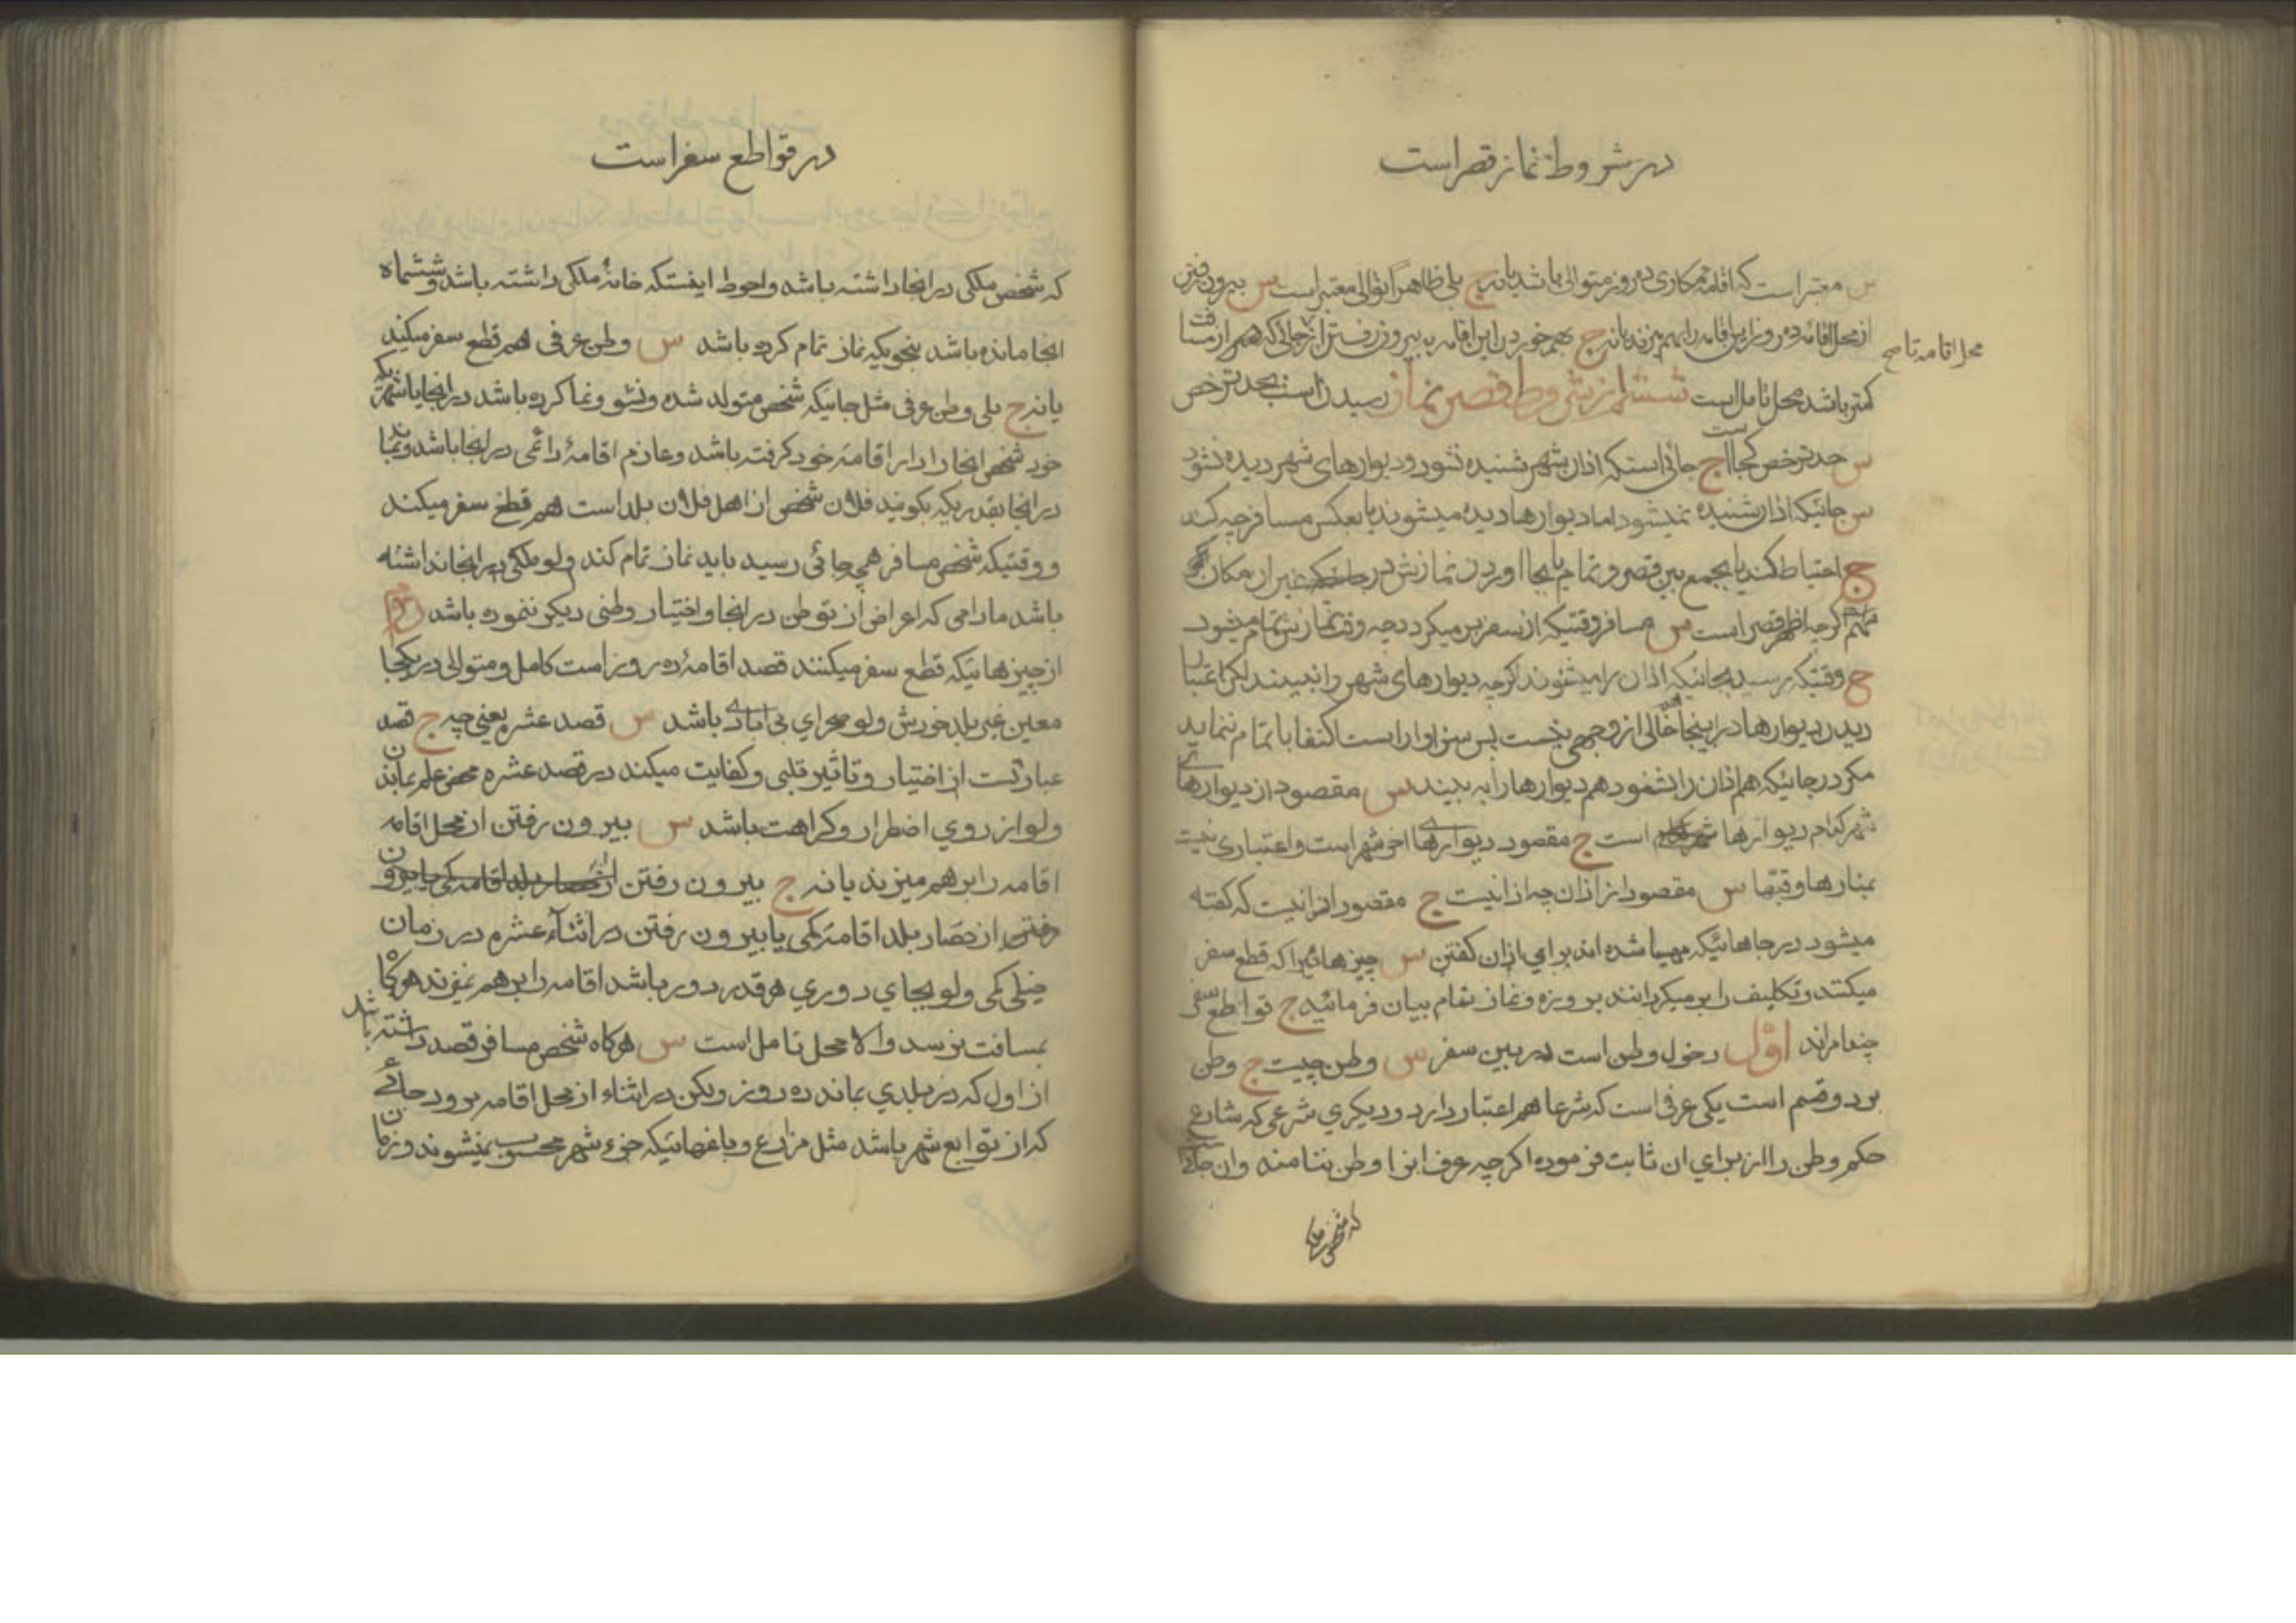 در شروط نماز قصر است
س معتبر است که اقامه مکاری ده روز متوالی باشد یا نه ج بلی ظاهرا توالی معتبر است س بیرون رفتن
از محل اقامه ده روز این اقامه را بهم میزند یا نه ج بهم خوردن این اقامه به بیرون رفتن از محلی که هم از مسافت
محل اقامه تا صح
کمتر باشد محل تامل است ششم از شروط قصر نماز رسیدن است بحد ترخص
س حد ترخص کجا است ج جائی استکه اذان شهر شنیده نشود و دیوارهای شهر دیده نشود
س جائیکه اذان شنیده نمیشود اما دیوارها دیده میشوند یا بعکس مسافر چه کند
ج احتیاط کند یا بجمع بین قصر و تمام یا بجا اوردن نمازش در غیر ان مکان
اگرچه اظهر قصر است س مسافر وقتیکه از سفر بر میگردد چه وقت نمازش تمام میشود
ج وقتیکه رسید بجائیکه اذان را میشنوند اگرچه دیوارهای شهر را نبینند لکن اعتبار
دیدن دیوارها در اینجا خالی از وجهی نیست پس سزاوار است اکتفا با تمام ننماید
مگر در جائیکه هم اذان را بشنود هم دیوارها را به بیند س مقصود از دیوارهای
شهر کدام دیوارها است ج مقصود دیوارهای اخر شهر است و اعتباری نیست
بمنارها و قبها س مقصود از اذان چه اذانیست ج مقصود اذانیست که گفته
میشود در جاهائیکه مهیا شده اند برای اذان گفتن س چیزهائیرا که قطع سفر
میکنند و تکلیف را بر میگردانند بروزه و نماز تمام بیان فرمائید ج قواطع سفر
چندامراند اول دخول وطن است در بین سفر س وطن چیست ج وطن
بر دو قسم است یکی عرفی است که شرعا هم اعتبار دارد و دیگری شرعی که شارع
حکم وطن را از برای ان ثابت فرموده اگرچه عرف انرا وطن ننامند و ان جائی
که شخص ملکی
در قواطع سفر است
که شخص ملکی در انجا داشته باشد و احوط اینستکه خانهٔ ملکی داشته باشد و ششماه
انجا مانده باشد بنحویکه نماز تمام کرده باشد س وطن عرفی هم قطع سفر میکند
یا نه ج بلی وطن عرفی مثل جائیکه شخص متولد شده و نشو و نما کرده باشد در انجا یا
خود شخص انجا را دار اقامهٔ خود گرفته باشد و عازم اقامهٔ دائمی در انجا باشد و بماند
در انجا بقدریکه بگویند فلان شخص از اهل فلان بلد است هم قطع سفر میکند
و وقتیکه شخص مسافر همچه جائی رسید باید نماز تمام کند ولو ملکی در انجا نداشته
باشد مادامی که اعراض از توطن در انجا و اختیار وطنی دیگر ننموده باشد دوم
از چیزهائیکه قطع سفر میکنند قصد اقامهٔ ده روز است کامل و متوالی در یکجا
معین غیر بلد خودش ولو صحرای بی ابادی باشد س قصد عشره یعنی چه ج قصد
عبارتست از اختیار و تاثیر قلبی و کفایت میکند در قصد عشره محض علم بماندن
ولو از روی اضطرار و کراهت باشد س بیرون رفتن از محل اقامه
اقامه را بر هم میزند یا نه ج بیرون رفتن
رفتن از حصار بلد اقامه کمی یا بیرون رفتن در اثناء عشره در زمان
خیلی کمی ولو بجای دوری هر قدر دور باشد اقامه را بر هم نمیزند هرگاه
بمسافت نرسد و الا محل تامل است س هرگاه شخص مسافر قصد داشته باشد
از اول که در بلدی بماند ده روز ولکن در اثناء از محل اقامه برود جائی
که از توابع شهر باشد مثل مزارع و باغهائیکه جزء شهر محسوب نمیشوند و زمان